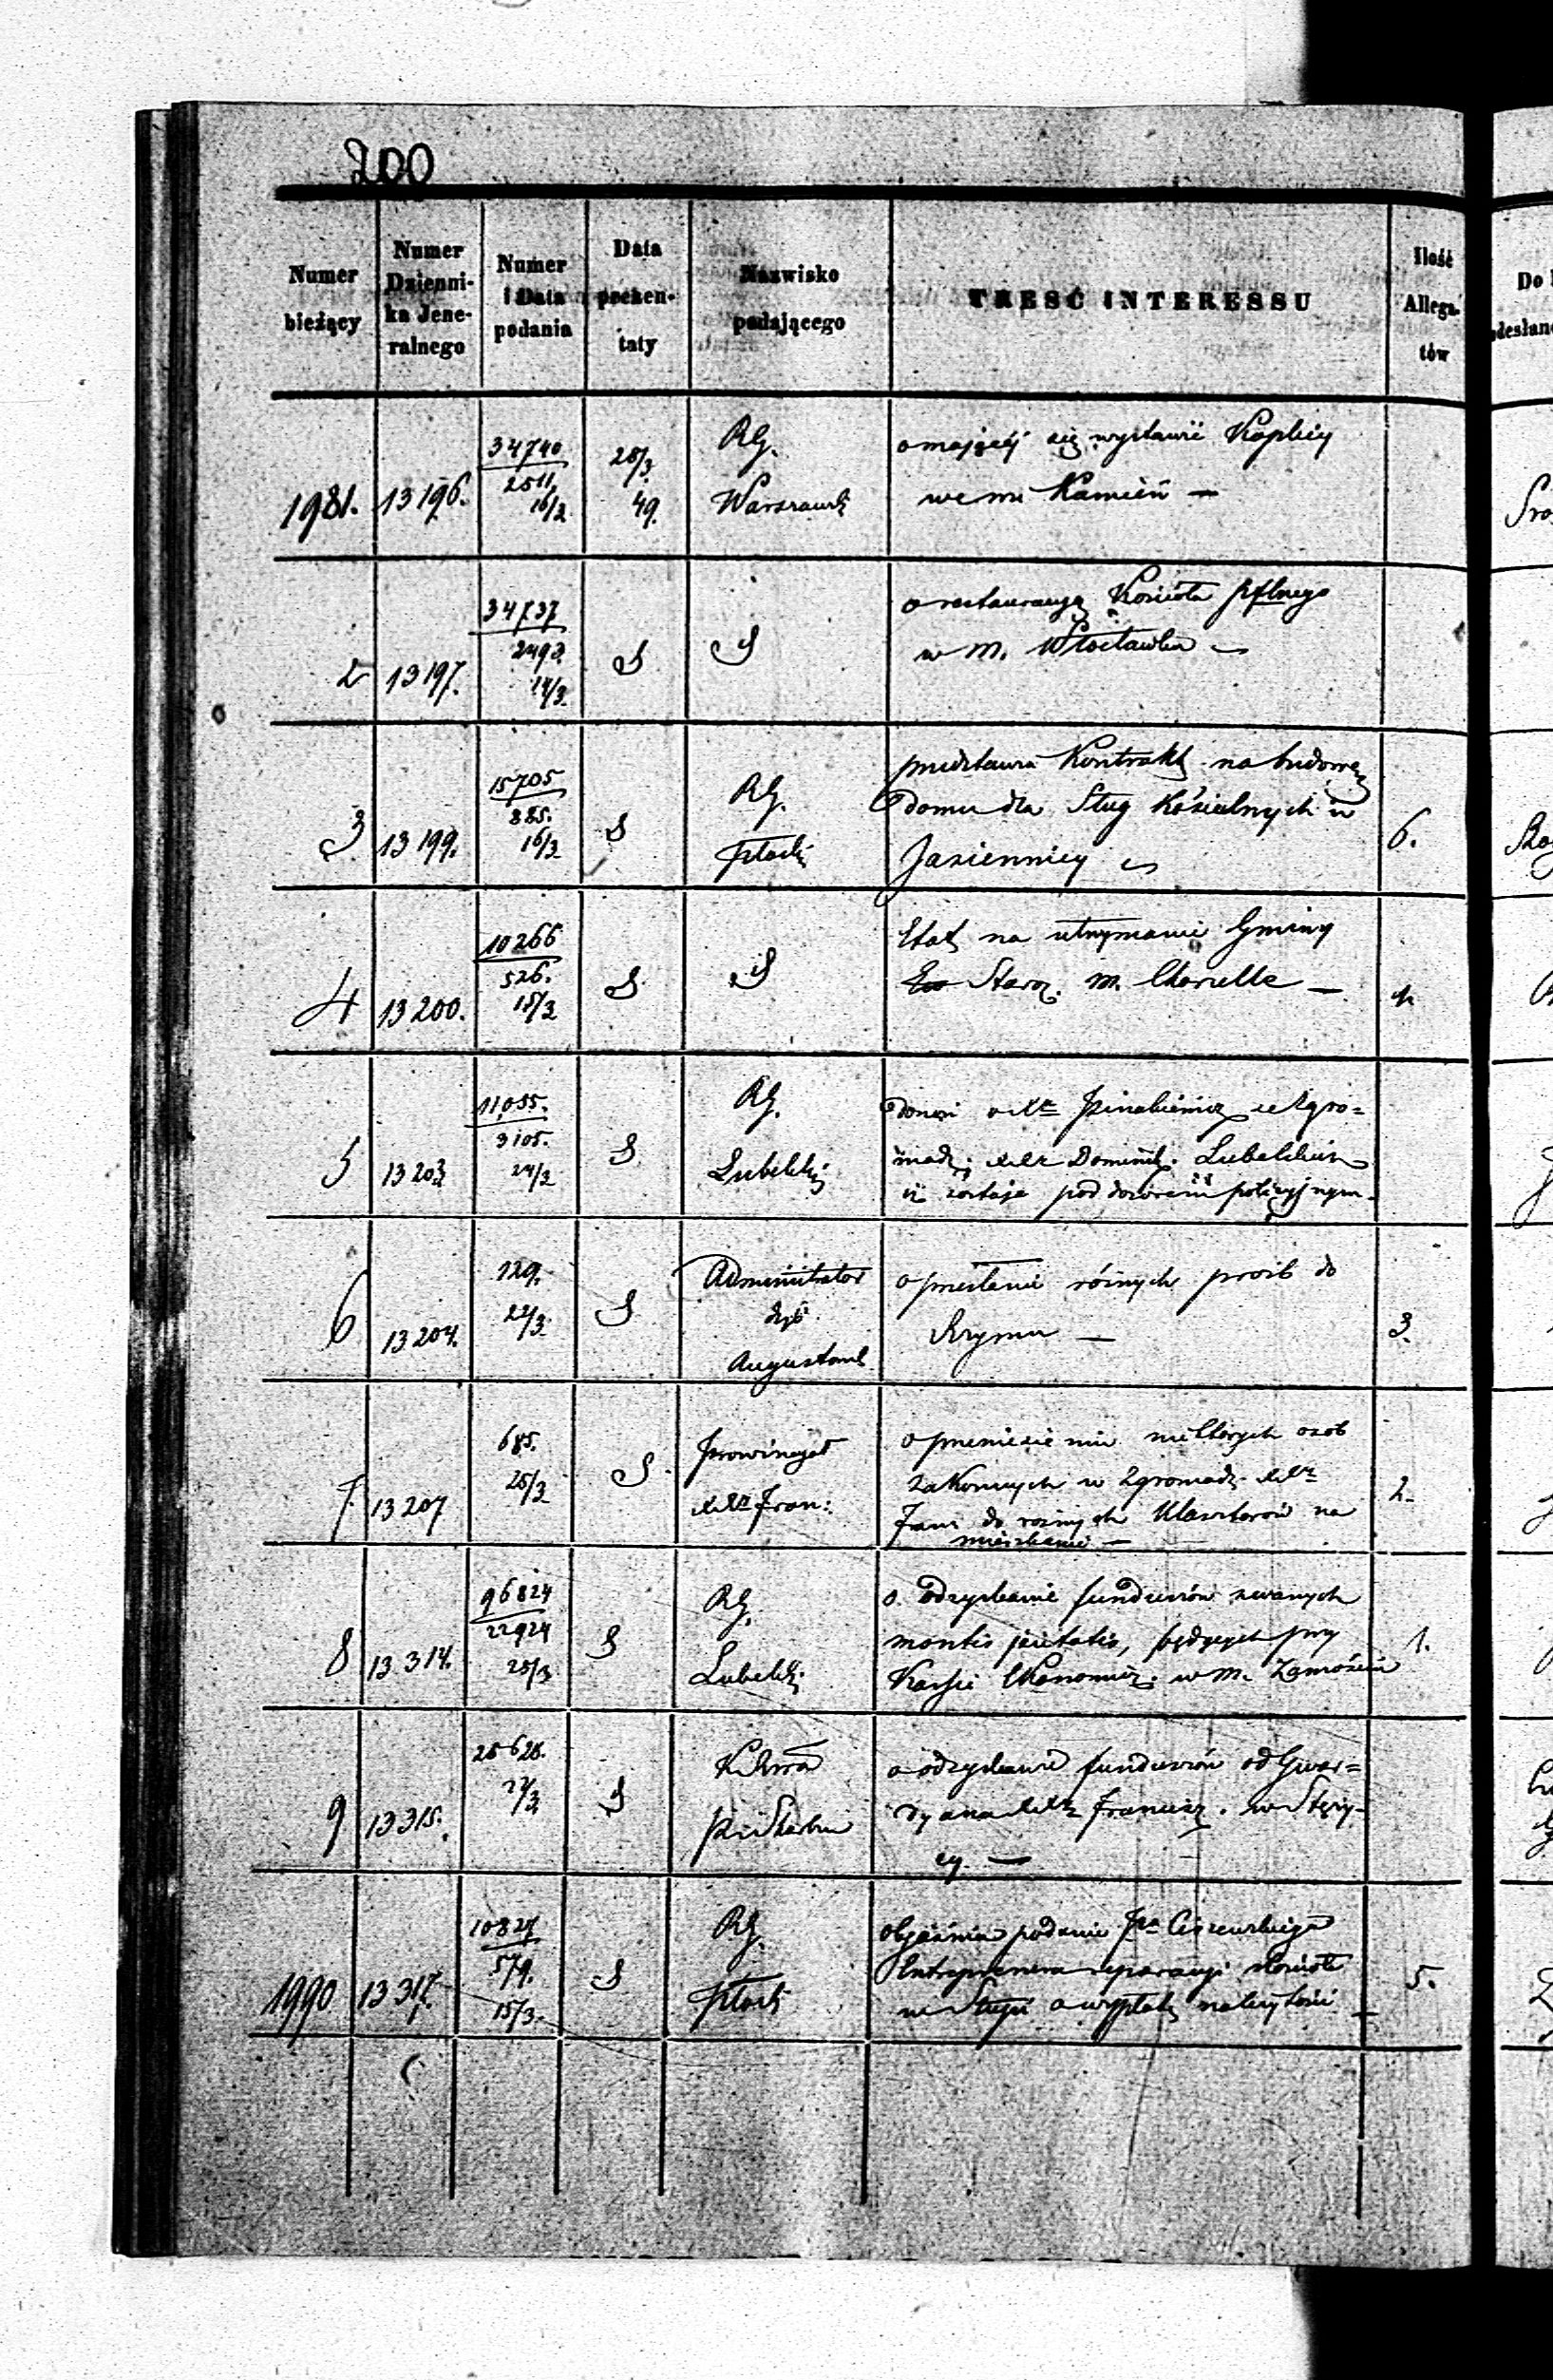 200
Numer
bieżący
Numer
Dzienni-
ka Jene-
ralnego
Numer
i Data
podania
Data
prezen-
taty
Nazwisko
podającego
TRESC INTERESSU
Ilość
Allega-
tów
Do
odesłan
1981.
13196.
34740
2511.
16/3
28/3.
49.
RG.
Warszawsk
o mającéj się wystawić Kaplicy
we wsi Kamień —
2
13197.
34737
2493.
14/3.
S
S
o restauracyą Kościoła pflnego
w m. Włocławku
3
13199.
15705
885.
16/3
S
RG.
Płocki
przedstawia Kontrakt na budowę
domu dla Sług Kościelnych w
Jasiennicy
6.
4
13200.
10266
526.
15/3
S
S
Etat na utrzymanie Gminy
Staroz. m. Chorzelle —
1.
5
13203
11,055.
3105.
24/3
S
RG.
Lubelski
donosi o XKs
zgro=
madz. XX Dominik. Lubelskim
iż zostaje pod dozorem policyjnym.
6
13204.
129.
22/3.
S
Administrator
dyć.
Augustows
o przesłanie różnych prośb do
Rzymu —
3.
7
13207
685.
25/3
S
Prowincyał
XX Fran:
o przeniesienie niektórych osób
zakonnych w Zgromadz. XX
Fran do rożnych Klasztorów na
mieszkanie —
2.
8
13314.
96824
22924
25/3
S
RG.
Lubelski
o odzyskanie funduszów zwanych
montis pietatis, będących przy
Kassie Ekonomicz. w m. Zamościu
1.
9
13315.
28628.
22/3
S
K
Skarbu
o odzyskanie funduszów od Gwar=
dyana XX Francisz. w Stęży-
cy —
1990
13317.
10827
579.
15/3.
S
RG.
Płocki
objaśnia podanie Pa Ciszewskiego
Entreprenera reparacyi Kościoła
w Słupi o wypłatę należytości —
5.